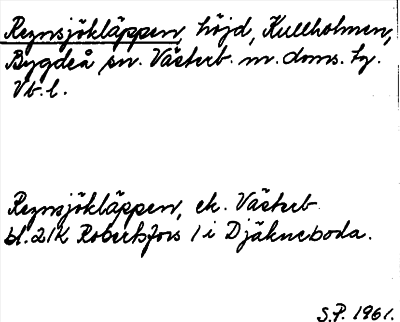 Reznsjökläppen, höjd, Kullholmen,
Bygdeå sn. Västerb. n. doms. hg.
Vb. l.
Reznsjökläppen, ek. Västerb
bl. 21K Robertsfors 1 i Djäkneboda.
S.P. 1961.